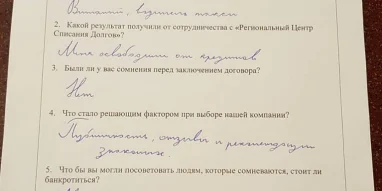 Виталий, водитель такси
2. Какой результат получили от сотрудничества с «Региональный Центр
Списания Долгов»?
Меня освободили от кредитов
3. Были ли у вас сомнения перед заключением договора?
Нет
4. Что стало решающим фактором при выборе нашей компании?
Публичность, отзывы и рекомендации
знакомых.
5. Что бы вы могли посоветовать людям, которые сомневаются, стоит ли
банкротиться?